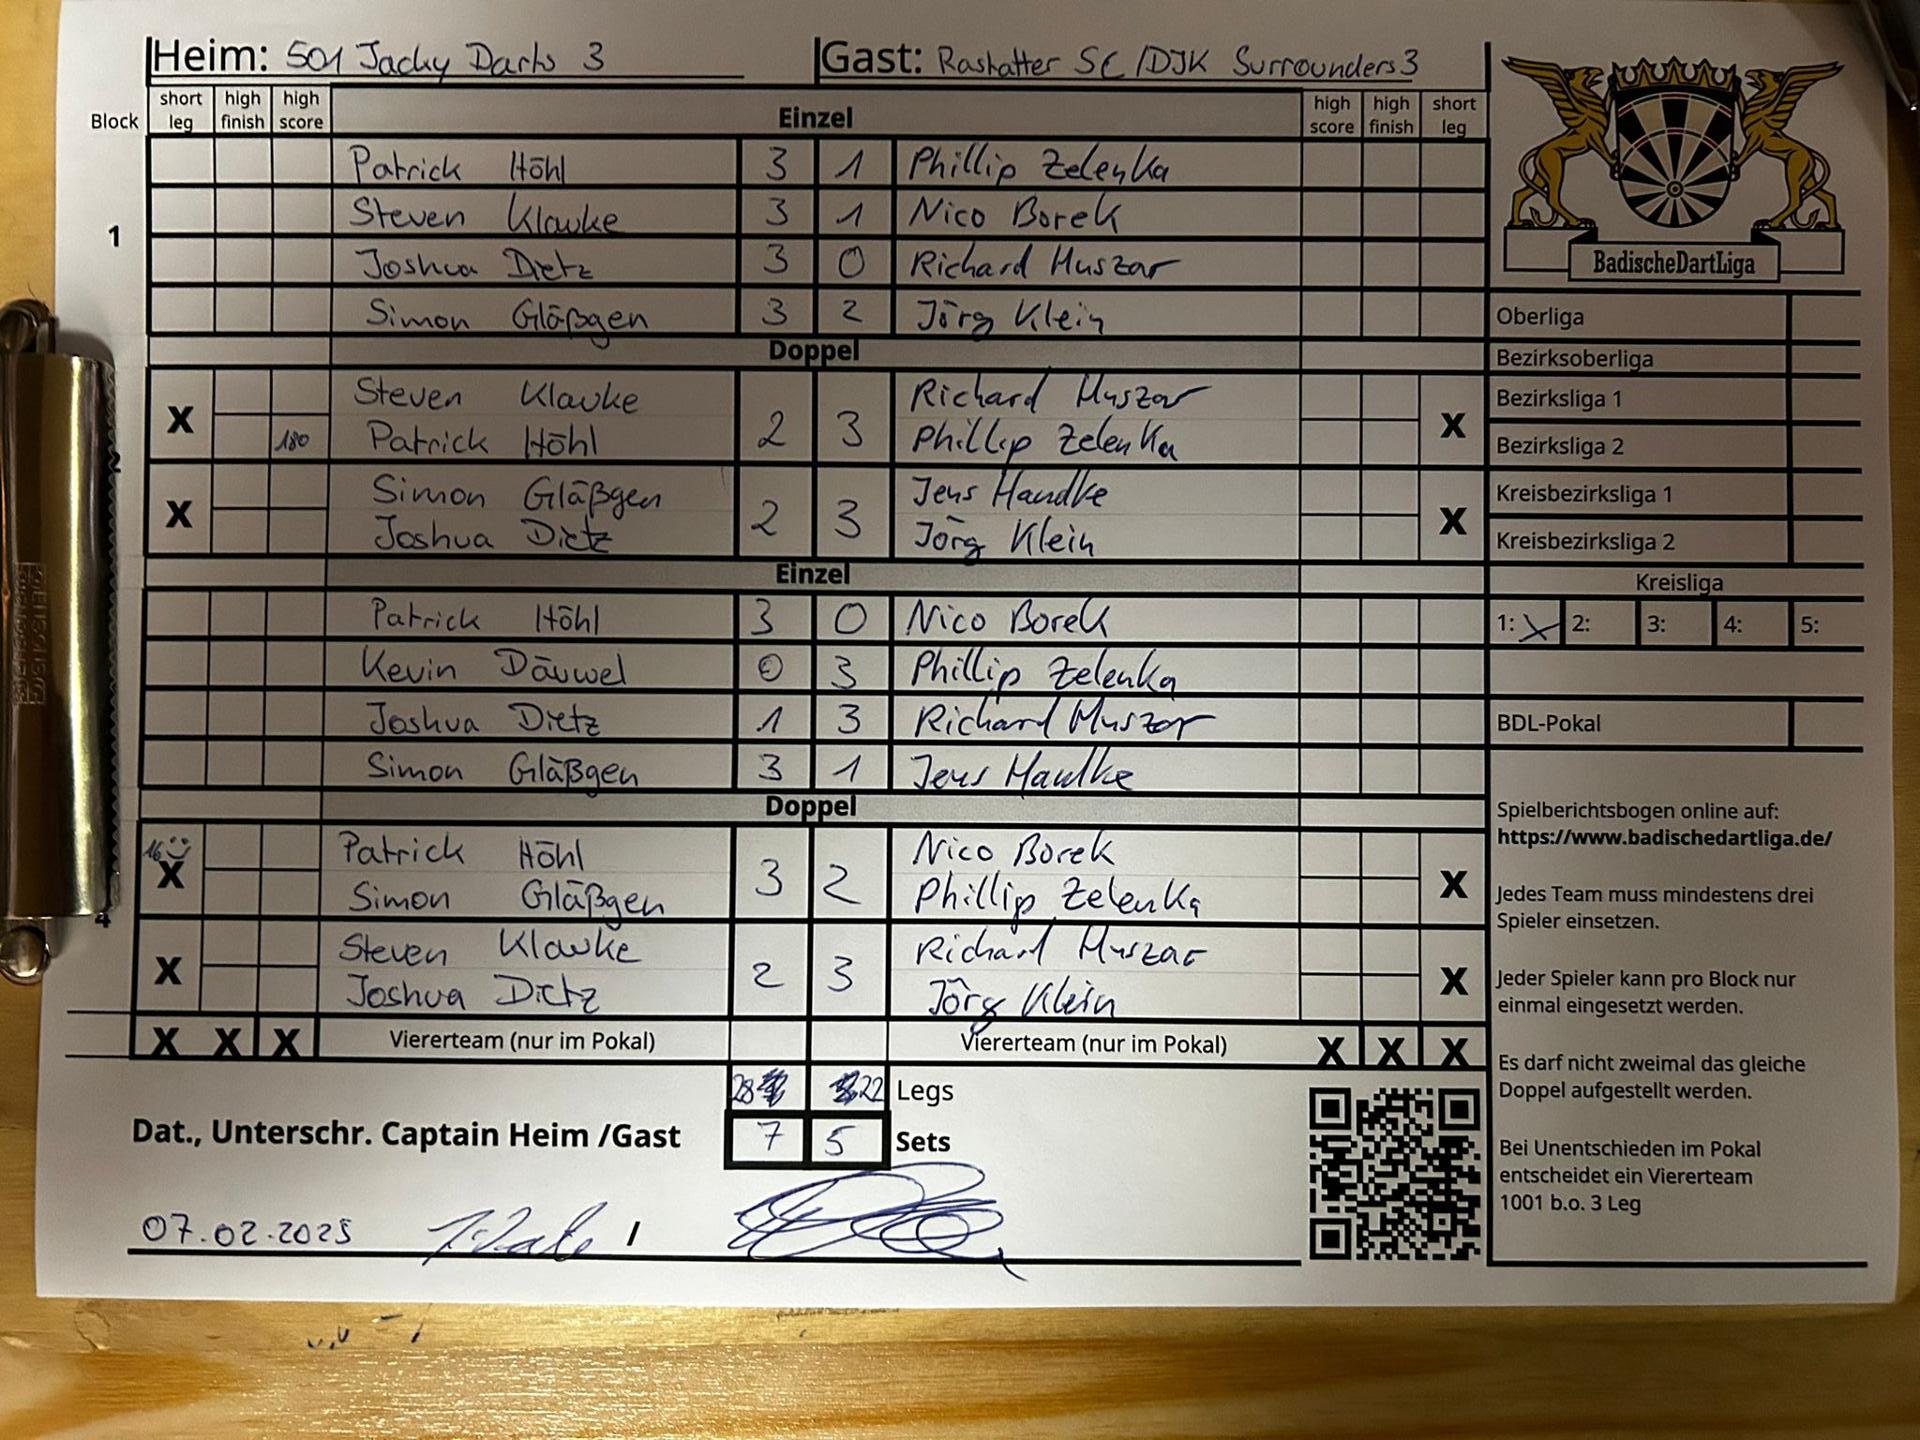 Heim: 501 Jacky Darts 3 Gast: Rastatter SC/DJK Surrounders 3
Block short leg high finish high score Einzel high score high finish short leg
1
Patrick Höhl 3 1 Phillip Zelenka
Steven Klauke 3 1 Nico Borek
Joshua Dietz 3 0 Richard Huszar
Simon Gläßgen 3 2 Jörg Klein
Doppel
X Steven Klauke 2 3 Richard Huszar X
180 Patrick Höhl Phillip Zelenka
2
X Simon Gläßgen 2 3 Jens Handke X
Joshua Dietz Jörg Klein
Einzel
Patrick Höhl 3 0 Nico Borek
Kevin Däuwel 0 3 Phillip Zelenka
Joshua Dietz 1 3 Richard Huszar
Simon Gläßgen 3 1 Jens Handke
Doppel
16 X Patrick Höhl 3 2 Nico Borek X
Simon Gläßgen Phillip Zelenka
4
X Steven Klauke 2 3 Richard Huszar X
Joshua Dietz Jörg Klein
X X X Viererteam (nur im Pokal) Viererteam (nur im Pokal) X X X
28 22 Legs
Dat., Unterschr. Captain Heim /Gast 7 5 Sets
07.02.2025 /
BadischeDartLiga
Oberliga
Bezirksoberliga
Bezirksliga 1
Bezirksliga 2
Kreisbezirksliga 1
Kreisbezirksliga 2
Kreisliga
1: X 2: 3: 4: 5:
BDL-Pokal
Spielberichtsbogen online auf:
https://www.badischedartliga.de/
Jedes Team muss mindestens drei
Spieler einsetzen.
Jeder Spieler kann pro Block nur
einmal eingesetzt werden.
Es darf nicht zweimal das gleiche
Doppel aufgestellt werden.
Bei Unentschieden im Pokal
entscheidet ein Viererteam
1001 b.o. 3 Leg